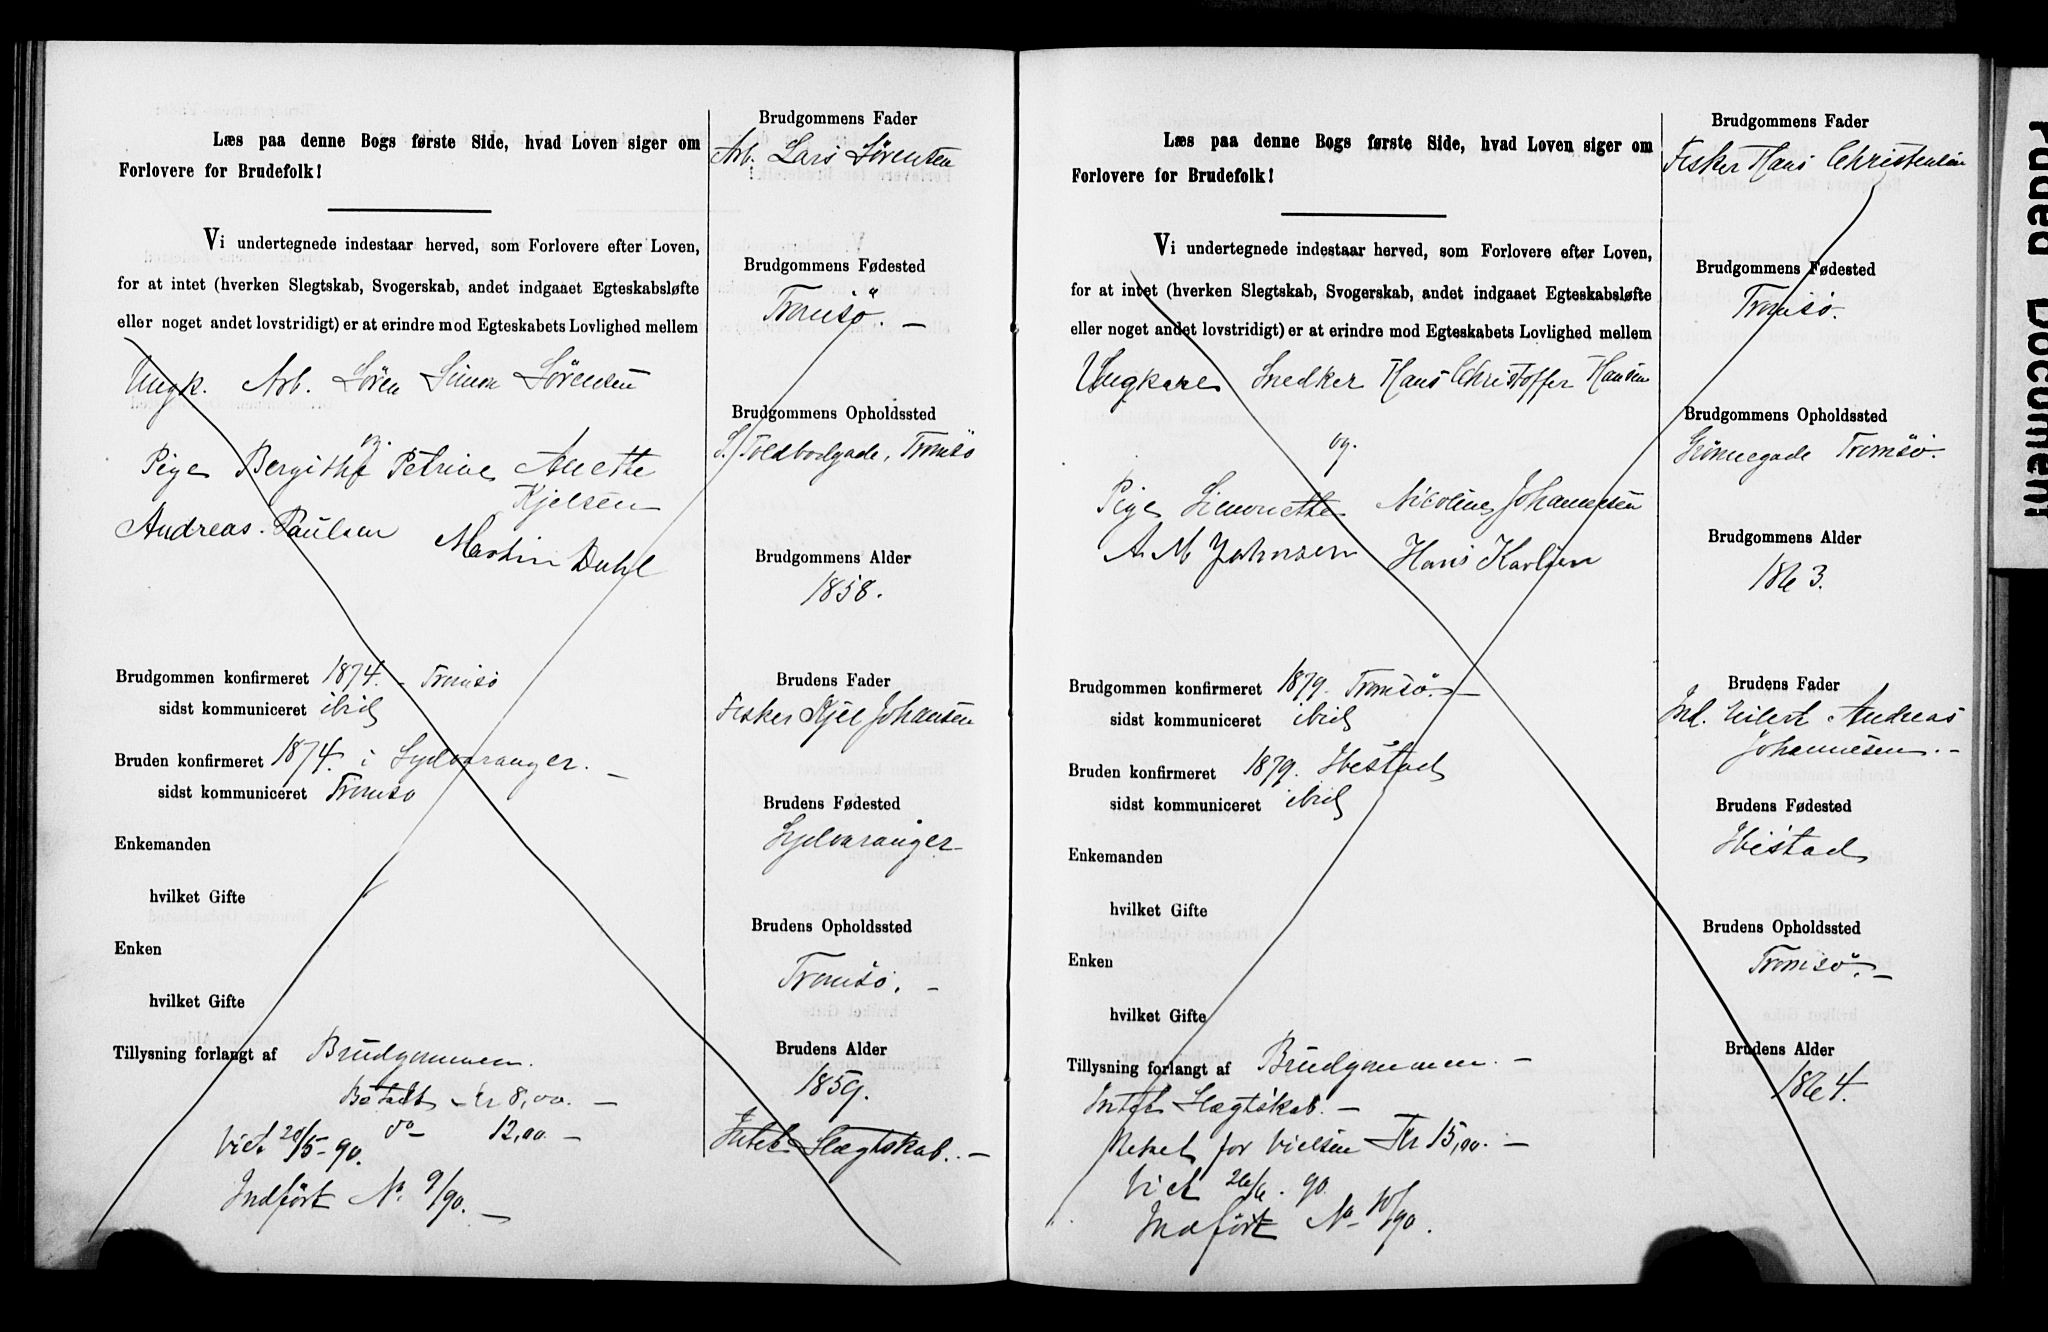 Læs paa denne Bogs første Side, hvad Loven siger om
Forlovere for Brudefolk!
Vi undertegnede indestaar herved, som Forlovere efter Loven,
for at intet (hverken Slegtskab, Svogerskab, andet indgaaet Egteskabsløfte
eller noget andet lovstridigt) er at erindre mod Egteskabets Lovlighed mellem
Ungk. Arb. Sören Simon Sörensen
og.
Pige Bergithe Petrine Anette
Kjelsen
Andreas Paulsen Martin Dahl
Brudgommen konfirmeret 1874. - Tromsö
sidst kommuniceret ibid
Bruden konfirmeret 1874. i Sydvaranger. -
sidst kommuniceret Tromsö
Enkemanden
hvilket Gifte
Enken
hvilket Gifte
Tillysning forlangt af Brudgommen.
Betalt - Kr 8,00. -
do - 12,00. -
Viet 20/5-90.
Indført No. 9/90. -
Brudgommens Fader
Arb. Lars Sörensen
Brudgommens Fødested
Tromsö. -
Brudgommens Opholdssted
S. Toldbodgade, Tromsö
Brudgommens Alder
1858.
Brudens Fader
Fisker Kjel Johansen
Brudens Fødested
Sydvaranger
Brudens Opholdssted
Tromsö. -
Brudens Alder
1859.
Intet Slægtskab. -
Læs paa denne Bogs første Side, hvad Loven siger om
Forlovere for Brudefolk!
Vi undertegnede indestaar herved, som Forlovere efter Loven,
for at intet (hverken Slegtskab, Svogerskab, andet indgaaet Egteskabsløfte
eller noget andet lovstridigt) er at erindre mod Egteskabets Lovlighed mellem
Ungkare Snedker Hans Christoffer Hansen
og.
Pige Simonette Nicoline Johannesen
A M Johnsen Hans Karlsen
Brudgommen konfirmeret 1879. Tromsö. -
sidst kommuniceret ibid
Bruden konfirmeret 1879. Ibestad
sidst kommuniceret ibid
Enkemanden
hvilket Gifte
Enken
hvilket Gifte
Tillysning forlangt af Brudgommen. -
Intet Slægtskab. -
for Vielsen Kr 15,00. -
Viet 26/6. 90
Indført No 10/90.
Brudgommens Fader
Fisker Hans Christensen
Brudgommens Fødested
Tromsö.
Brudgommens Opholdssted
Grönnegade Tromsö.
Brudgommens Alder
1863.
Brudens Fader
Ind. Eilert Andreas
Johannesen. -
Brudens Fødested
Ibestad
Brudens Opholdssted
Tromsö. -
Brudens Alder
1864.
Faded Document